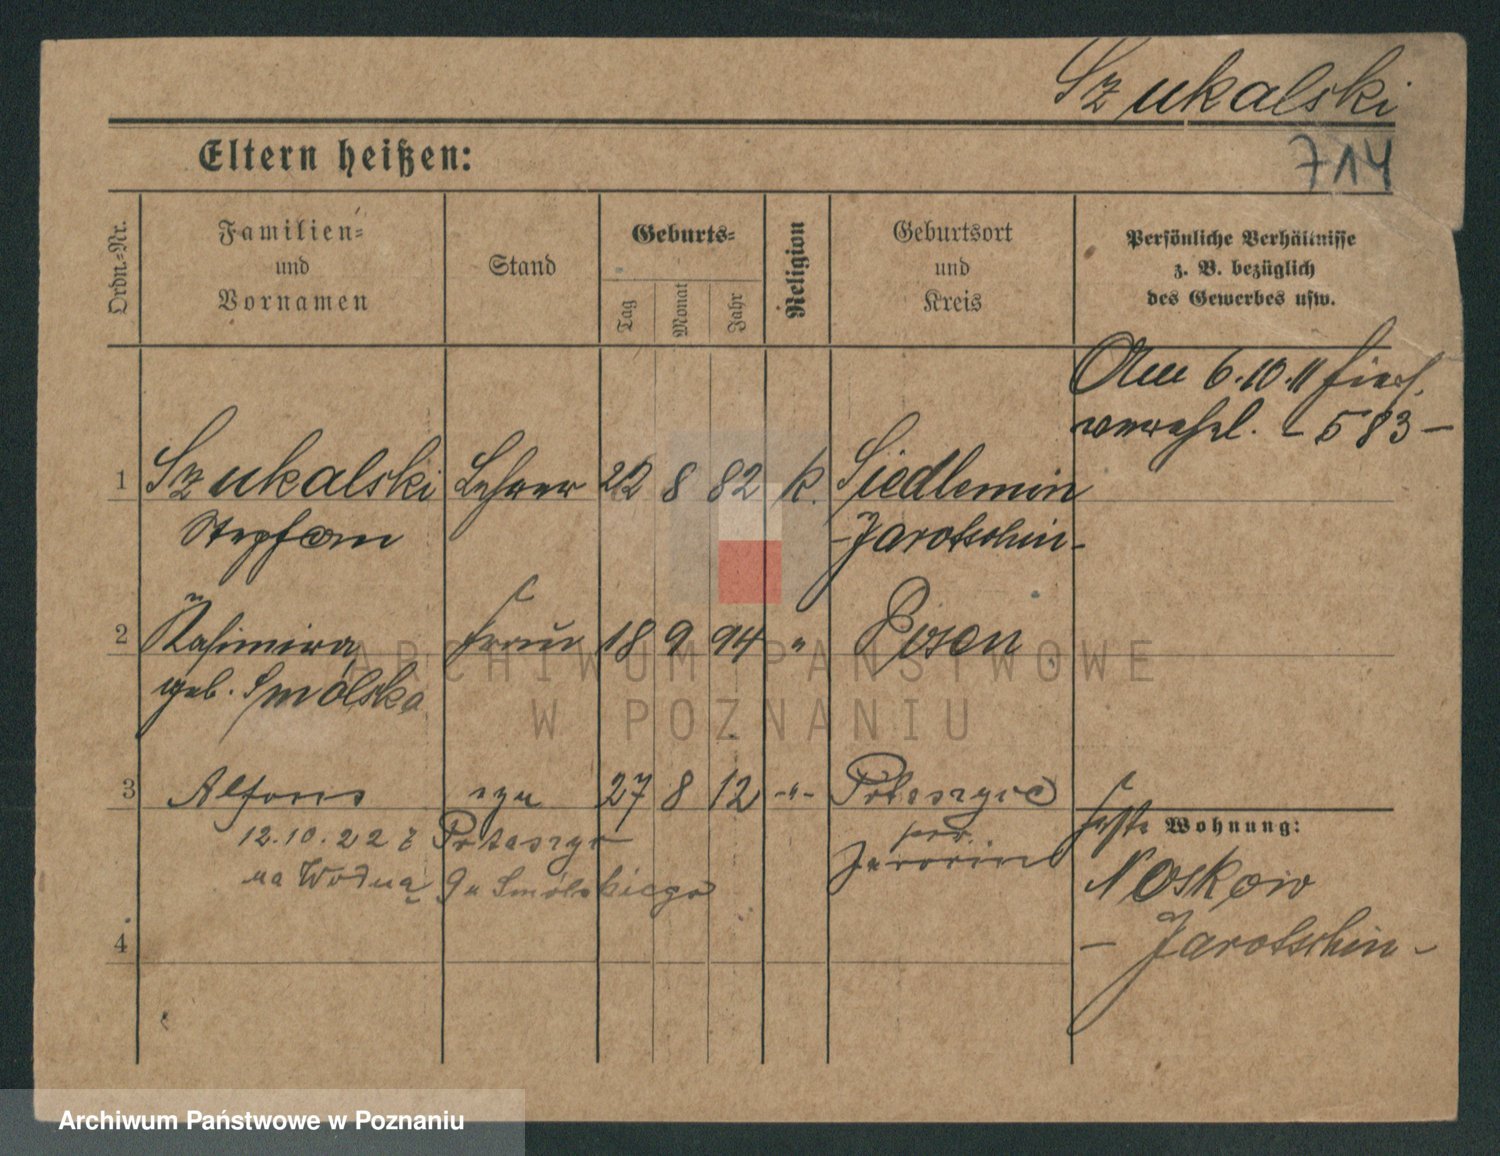 Szukalski
714
Eltern heißen:
Ordn.-Nr.
Familien-
und
Vornamen
Stand
Geburts-
Tag
Monat
Jahr
Religion
Geburtsort
und
Kreis
Persönliche Verhältnisse
z. B. bezüglich
des Gewerbes usw.
Am 6.10.11 hier
verehel. - 583 -
1 Szukalski Lehrer 22 8 82 k. Siedlemin
Stephan - Jarotschin -
2 Kasimira Frau 18 9 94 " Posen
geb. Smólska
3 Alfons syn 27 8 12 -"- Potaszyce
12.10.22 z Potaszyc
pow.
Jarocin
na Wodną 9 u Smólskiego
4
Wohnung:
Noskow
- Jarotschin -
ARCHIWUM PAŃSTWOWE
W POZNANIU
Archiwum Państwowe w Poznaniu